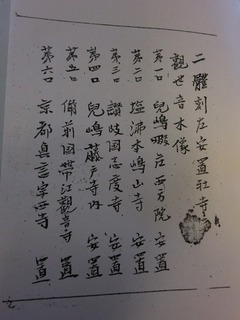 二體刻左安置社寺
觀世音木像
第一口 兒嶋郡庄西方院 安置
第二口 塩沸本嶋山寺 安置
第三口 讃岐国志度寺 安置
第四口 兒嶋藤戸寺内 安置
第五口 備前国帯江觀音寺 置
第六口 京都真言宗西寺 置